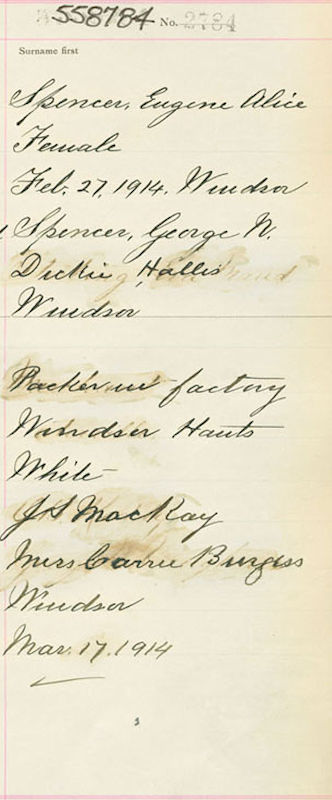 558784 No. 2784
Surname first
Spencer, Eugene Alice
Female
Feb. 27, 1914. Windsor
Spencer, George N.
Dickie, Hallis
Windsor
Packer in factory
Windsor Hants
White
J S MacKay
Mrs Carrie Burgess
Windsor
Mar. 17. 1914